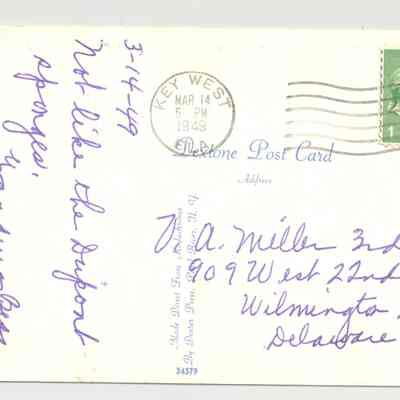 3-14-49
Not like the Dupont
sponges.
KEY WEST
MAR 14
PM
1949
FLA.
Dextone Post Card
Address
1
A. Miller 3rd
909 West 22nd
Wilmington
Delaware
Made Direct From
By Dexter Press, Pearl River, N. Y.
34579